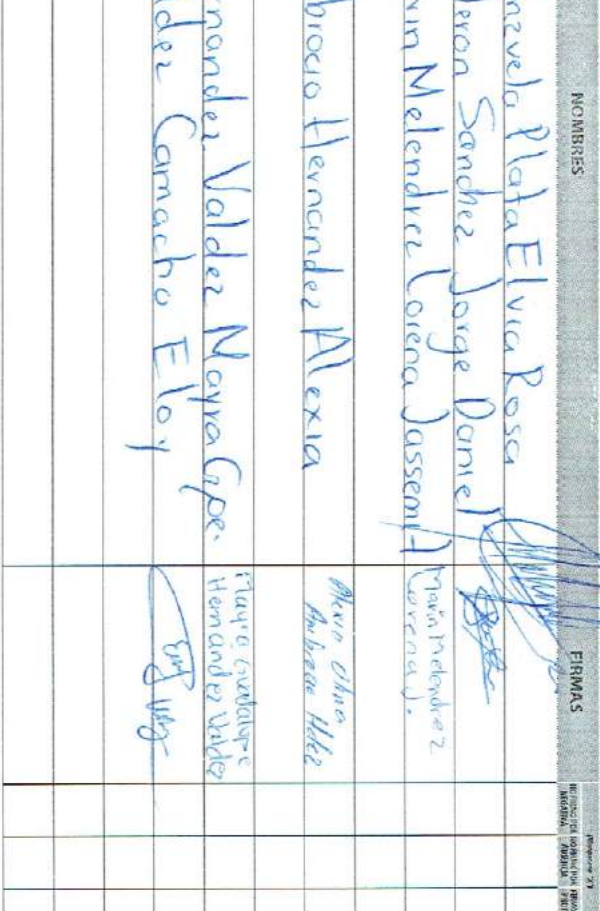 NOMBRES FIRMAS
nzuela Plata Elvia Rosa
deron Sanchez Jorge Daniel
rin Melendrez Lorena Jassemit Marin Melendrez
Lorena J.
brocio Hernandez Alexia
rnandez Valdez Mayra Gpe. Mayra Guadalupe
Hernandez Valdez
dez Camacho Eloy